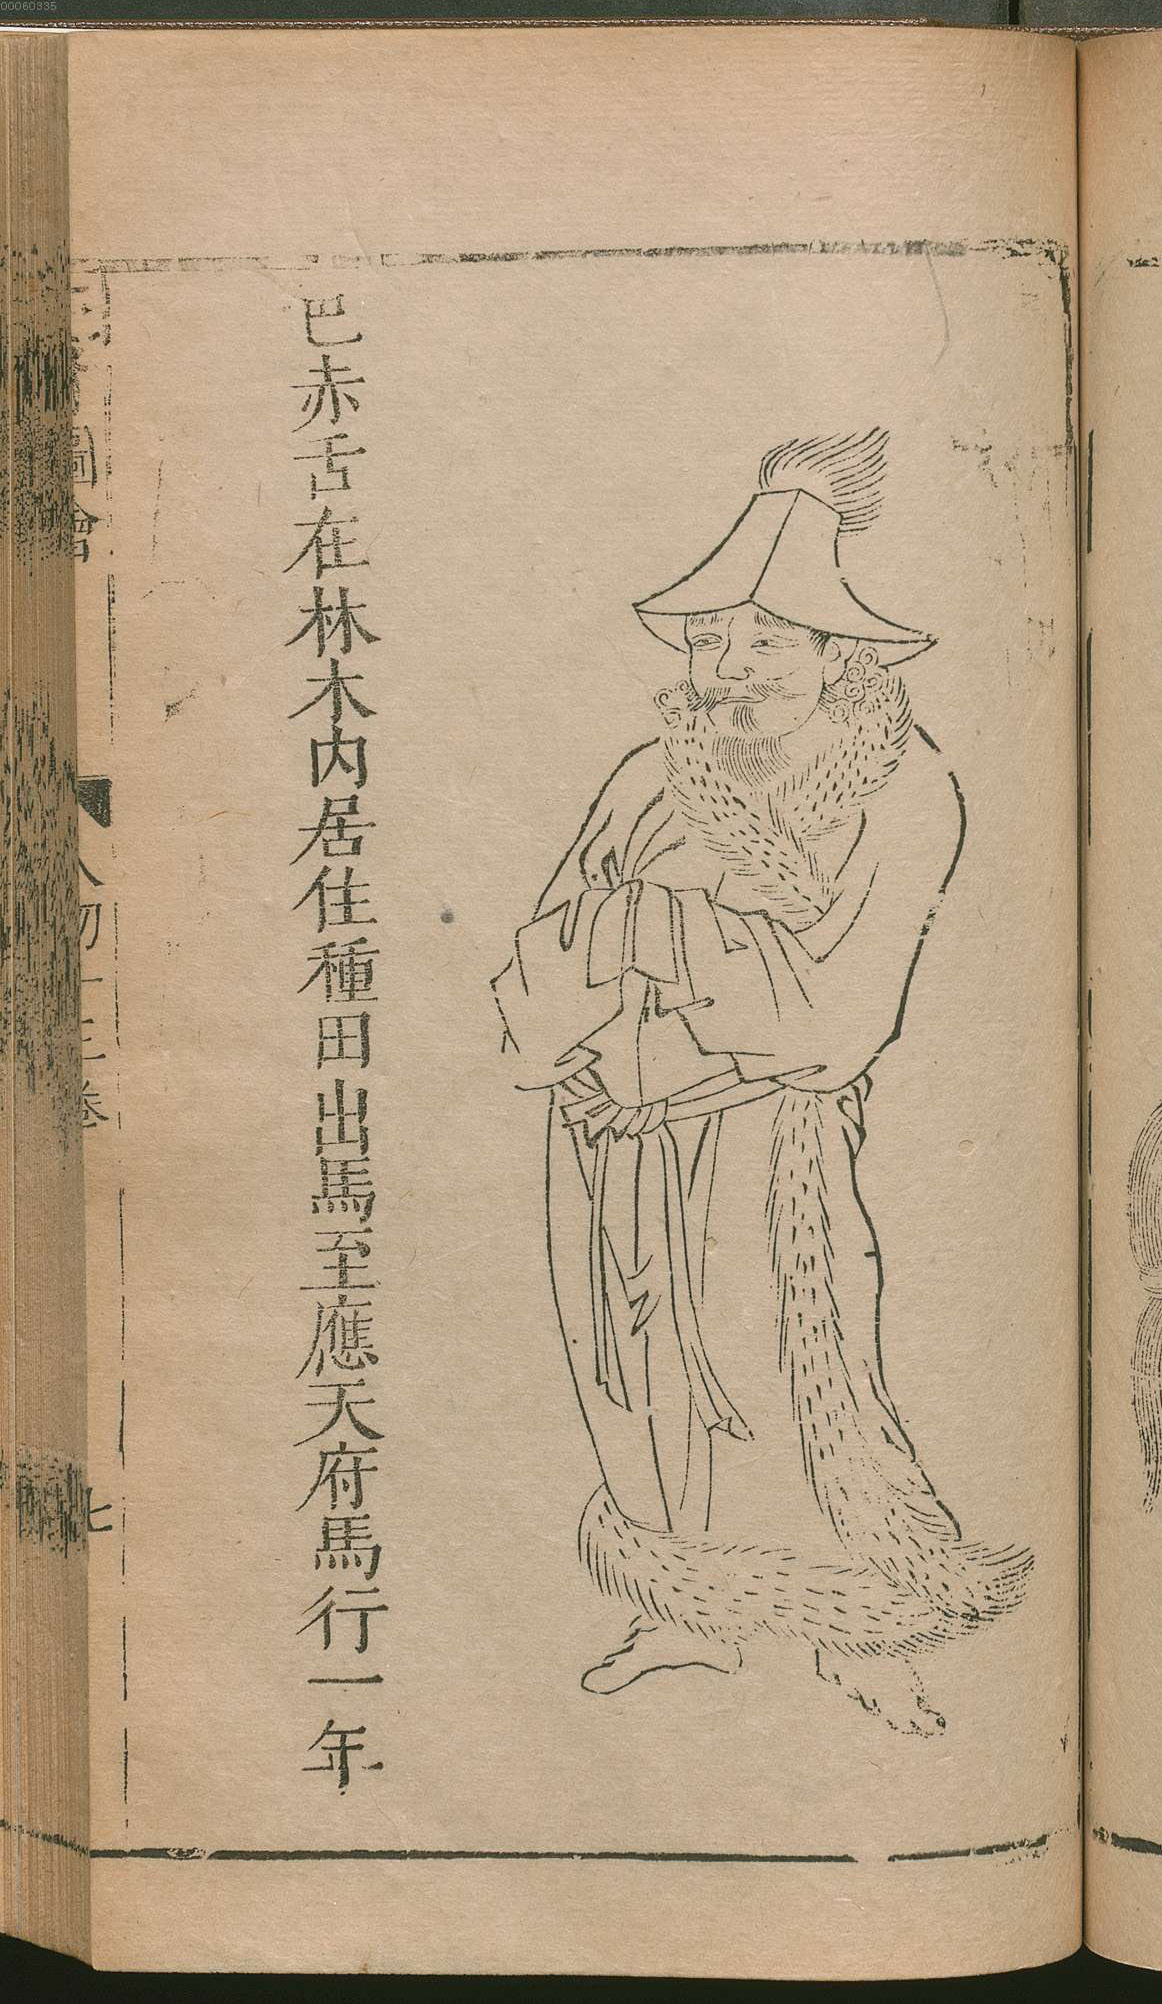 00060335
巴赤舌在林木内居住種田出馬至應天府馬行一年
圖會
人物十三卷
七